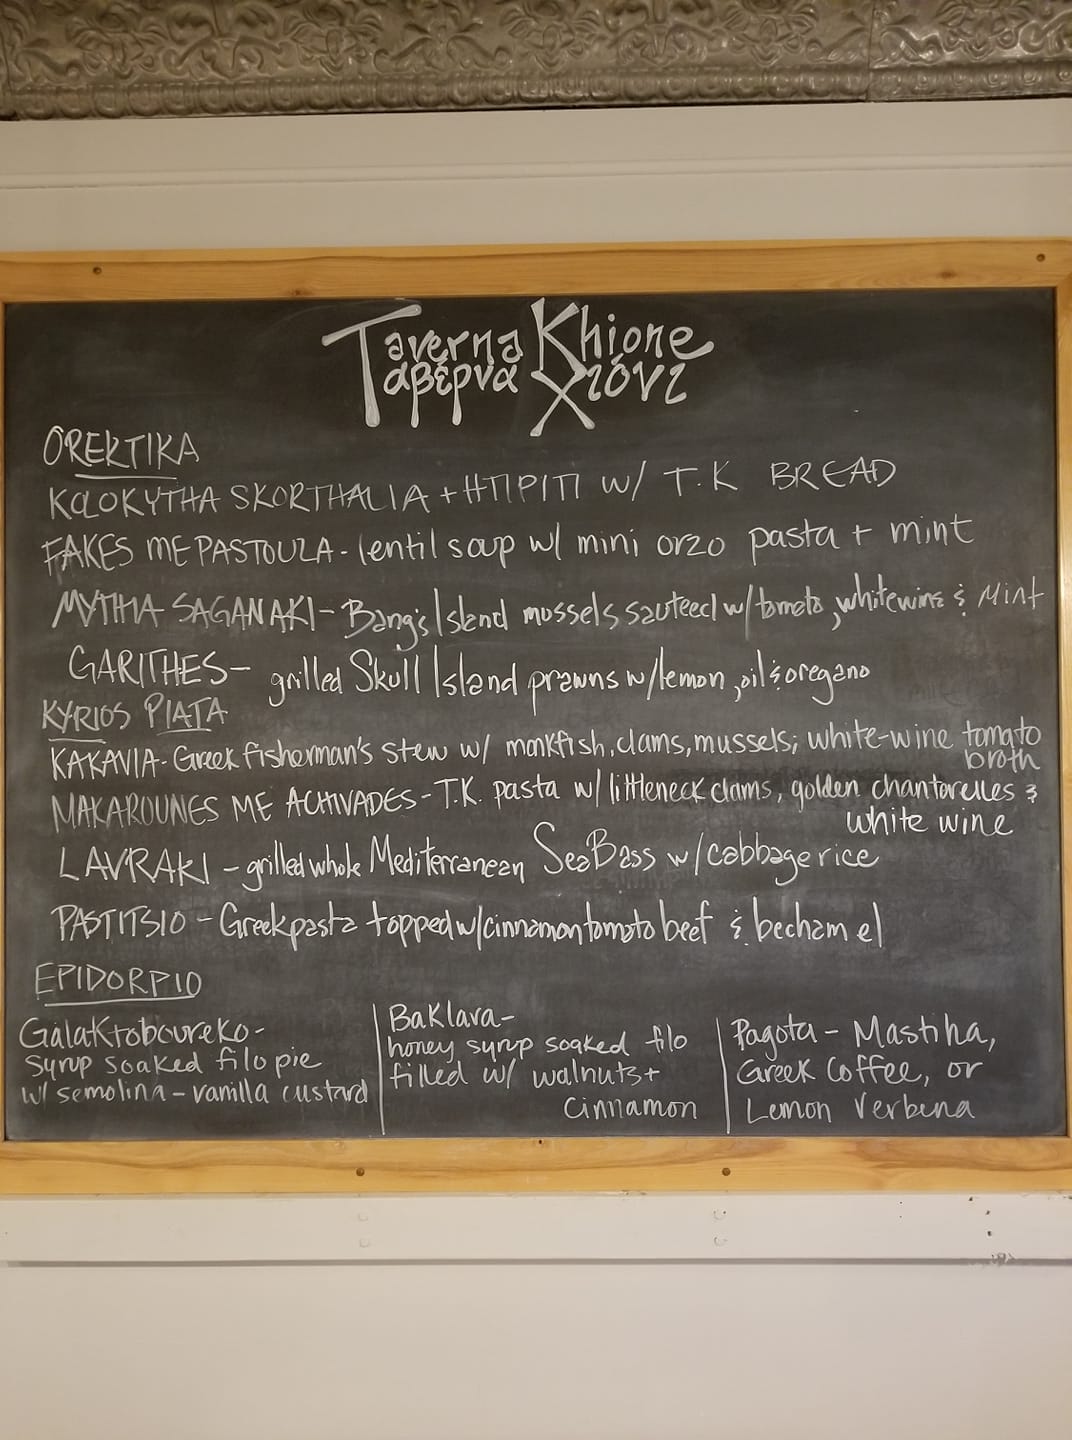 Taverna Khione
Ταβέρνα Χιόνι
OREKTIKA
KOLOKYTHA SKORTHALIA + HTIPITI W/ T.K BREAD
FAKES ME PASTOULA - lentil soup w/ mini orzo pasta + mint
MYTHIA SAGANAKI - Bang's Island mussels sauteed w/ tomato, white wine & Mint
GARITHES - grilled Skull Island prawns w/ lemon, oil & oregano
KYRIOS PIATA
KAKAVIA - Greek fisherman's stew w/ monkfish, clams, mussels; white-wine tomato
broth
MAKAROUNES ME ACHIVADES - T.K. pasta w/ littleneck clams, golden chantarelles &
white wine
LAVRAKI - grilled whole Mediterranean Sea Bass w/ cabbage rice
PASTITSIO - Greek pasta topped w/ cinnamon tomato beef & bechamel
EPIDORPIO
Galaktoboureko -
syrup soaked filo pie
w/ semolina - vanilla custard
Baklava -
honey syrup soaked filo
filled w/ walnuts +
cinnamon
Pagota - Mastiha,
Greek Coffee, or
Lemon Verbena